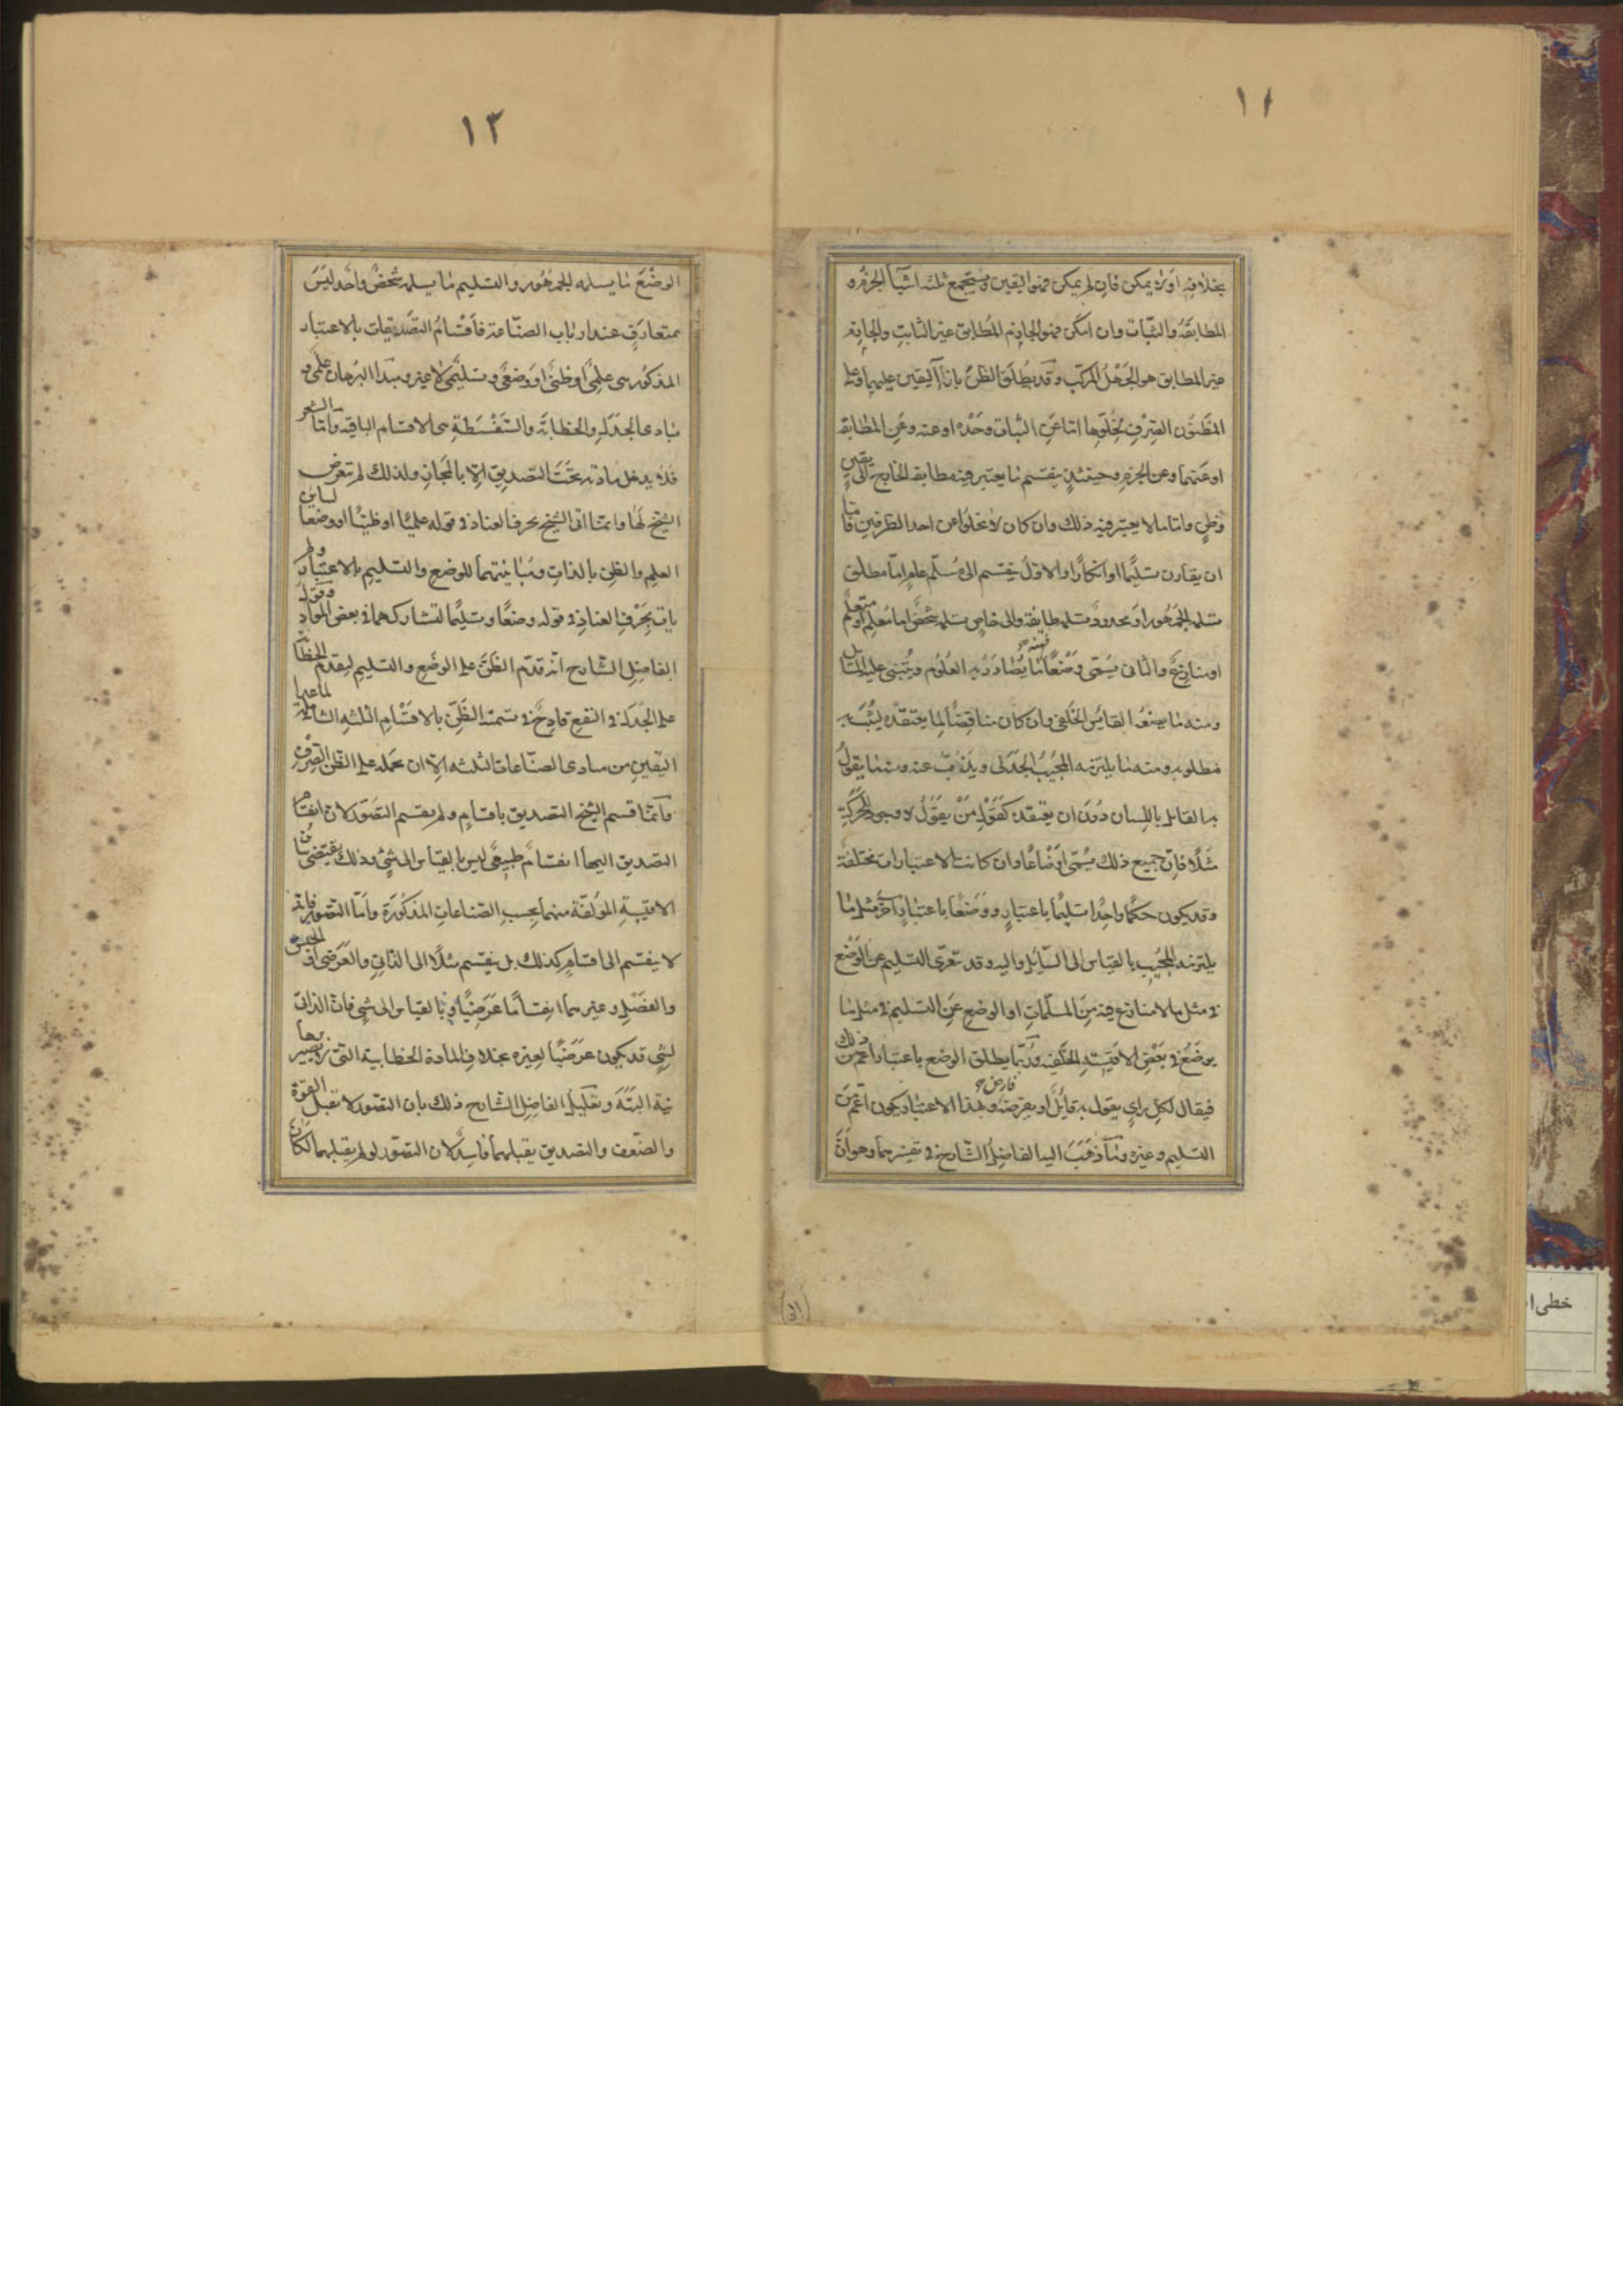 ١١
بخلافه او لا يمكن فان لم يمكن فهو اليقين ويستجمع ثلثه اشيآ الجزم و
المطابقَة والثبات وان امكن فهو الجازم المُطابق غير الثابت والجازم
غير المطابق هو الجَهْلُ المركّب وقد يطلق الظنّ بازآ اليقين عليهما وعلى
المظنُون الصِرف لخلوّها امّا عَنِ الثبات وحْدَه او عنه وعَنِ المطابقه
او عنهما وعن الجزم وحينئذٍ ينقسم ما يعتبر فيه مطابقه الخارج الى يقينٍ
وظنٍ واما ما لا يعتبر فيه ذلك وان كان لا يخلوا عن احد الطرفين فاما
ان يقارن تسليمًا او انكارًا والاوّلُ ينقسم الى مُسلّم عامٍ امّا مطلق
تسلمه الجمهور او محدودٌ تسلمه طايفة والى خاصٍ تسلمه شخصٌ اما مُعلم او متعلّم
او منازعٌ والثانى يُسمّى وضعًا فمنه ما يُصَادَرُ به العُلُوم ويُبتنى عليه المسَايل
ومنه ما يضعُه القايسُ الخَلفى وان كان مناقِضًا لِما يعتقدُه ليُثبت به
مطلوبه ومنه ما يلتزمه المجيبُ الجَدَلى ويذبّ عنه ومنه ما يقولُ
به القايل باللِسان دُونَ ان يعتقده كقَوْلِ مَنْ يقَوُلُ لا وجود للحَركَةِ
مثلًا فانّ جميع ذلك يُسمّى اوْضَاعًا وان كانت الاعتبارات مختلفَة
وقد يكون حكمٌ واحِدٌ تسليمًا باعتبارٍ ووَضْعًا باعتبارٍ آخر مثل ما
يلتزمه المجيب بالقياس الى السّائل واليه وقد تعرّى التسليم عن الوَضْع
فى مثل ما لا منازع فيه مِنَ المسلّمات او الوضع عَنِ التسليم فى مثل ما
يوضَعُ فى بَعْض الاقيسَةِ الخَلفيه ورُبّما يطلق الوضع باعتبار اعمّ من ذلك
فيقال لكل راىٍ يقول به قايلٌ او يفرضه فارض وبهذا الاعتبار يكون اعمّ مِنَ
التسليم وغيره وما ذهَبَ اليه الفاضِلُ الشارح فى تفسيرهما وهو انّ
١٢
الوضْعَ ما يسلمه الجمهُور والتسليم ما يسلمه شخصٌ واحد ليسَ
بمتعارَفٍ عند ارباب الصنّاعة فاقسَامُ التصَديقات بالاعتبار
المذكور هى علمىٌ او ظنىٌ او وضعىٌ وتسليمىٌ لا غير ومبدأ البُرهان علمىٌ و
مبادى الجَدَل والخطابَة والسَفْسَطَةِ هى الاقسام الباقيه وامّا الشعر
فلا يدخل مادته تحْتَ التصديق الّا بالمَجازِ ولذلك لم يتعرض
الشيخ لهَا وانما اتى الشيخ بحرف العناد فى قوله علميًا او ظنيًا او وضعيًا لتباين
العلم والظن بالذاتِ ومُباينتهما للوضع والتسليم بالاعتبار ولم
يات بحَرْفِ العناد فى قوله وضعًا وتسليمًا لتشاركهما فى بعض الموادّ وقول
الفاضِلِ الشارح انه قدّم الظَنَّ على الوضَع والتسليم لتقدّم الخطابة
على الجَدَل فى النفع قادِحٌ فى تسمية الظَنّ بالاقسَام الثلثه الشاملة لما عدا
اليقين من مبادى الصنّاعات الثلثه الّا ان يحمله على الظن الصِرف
وانمّا قسم الشيخ التصديق باقسامٍ ولم يقسم التصَوّر لان انقسام
التصديق اليها انقسامٌ طبيعىٌ ليس بالقياس الى شئ وذلك يقتضى تباين
الاقيسة المؤلفة منهما بحسب الصناعات المذكورة وامّا التصّور فانه
لا ينقسم الى اقسامٍ كذلك بل ينقسم مثلًا الى الذاتىِ والعَرَضى والجنس
والفصْلِ وغيرهما انقسَامًا عَرَضِيًا وبالقياس الى شئٍ فان الذاتى
لشئٍ قد يكون عرَضيًا لغيره بخلاف المادة الخطابية التى لا يصير برها
نية البتّةَ وتعليل الفاضِل الشارح ذلك بان التصّور لا تقبل القوّة
والضعف والتصديق يقبلهما فاسِدٌ لان التصّور لو لم يقبلهما لكان
خطى